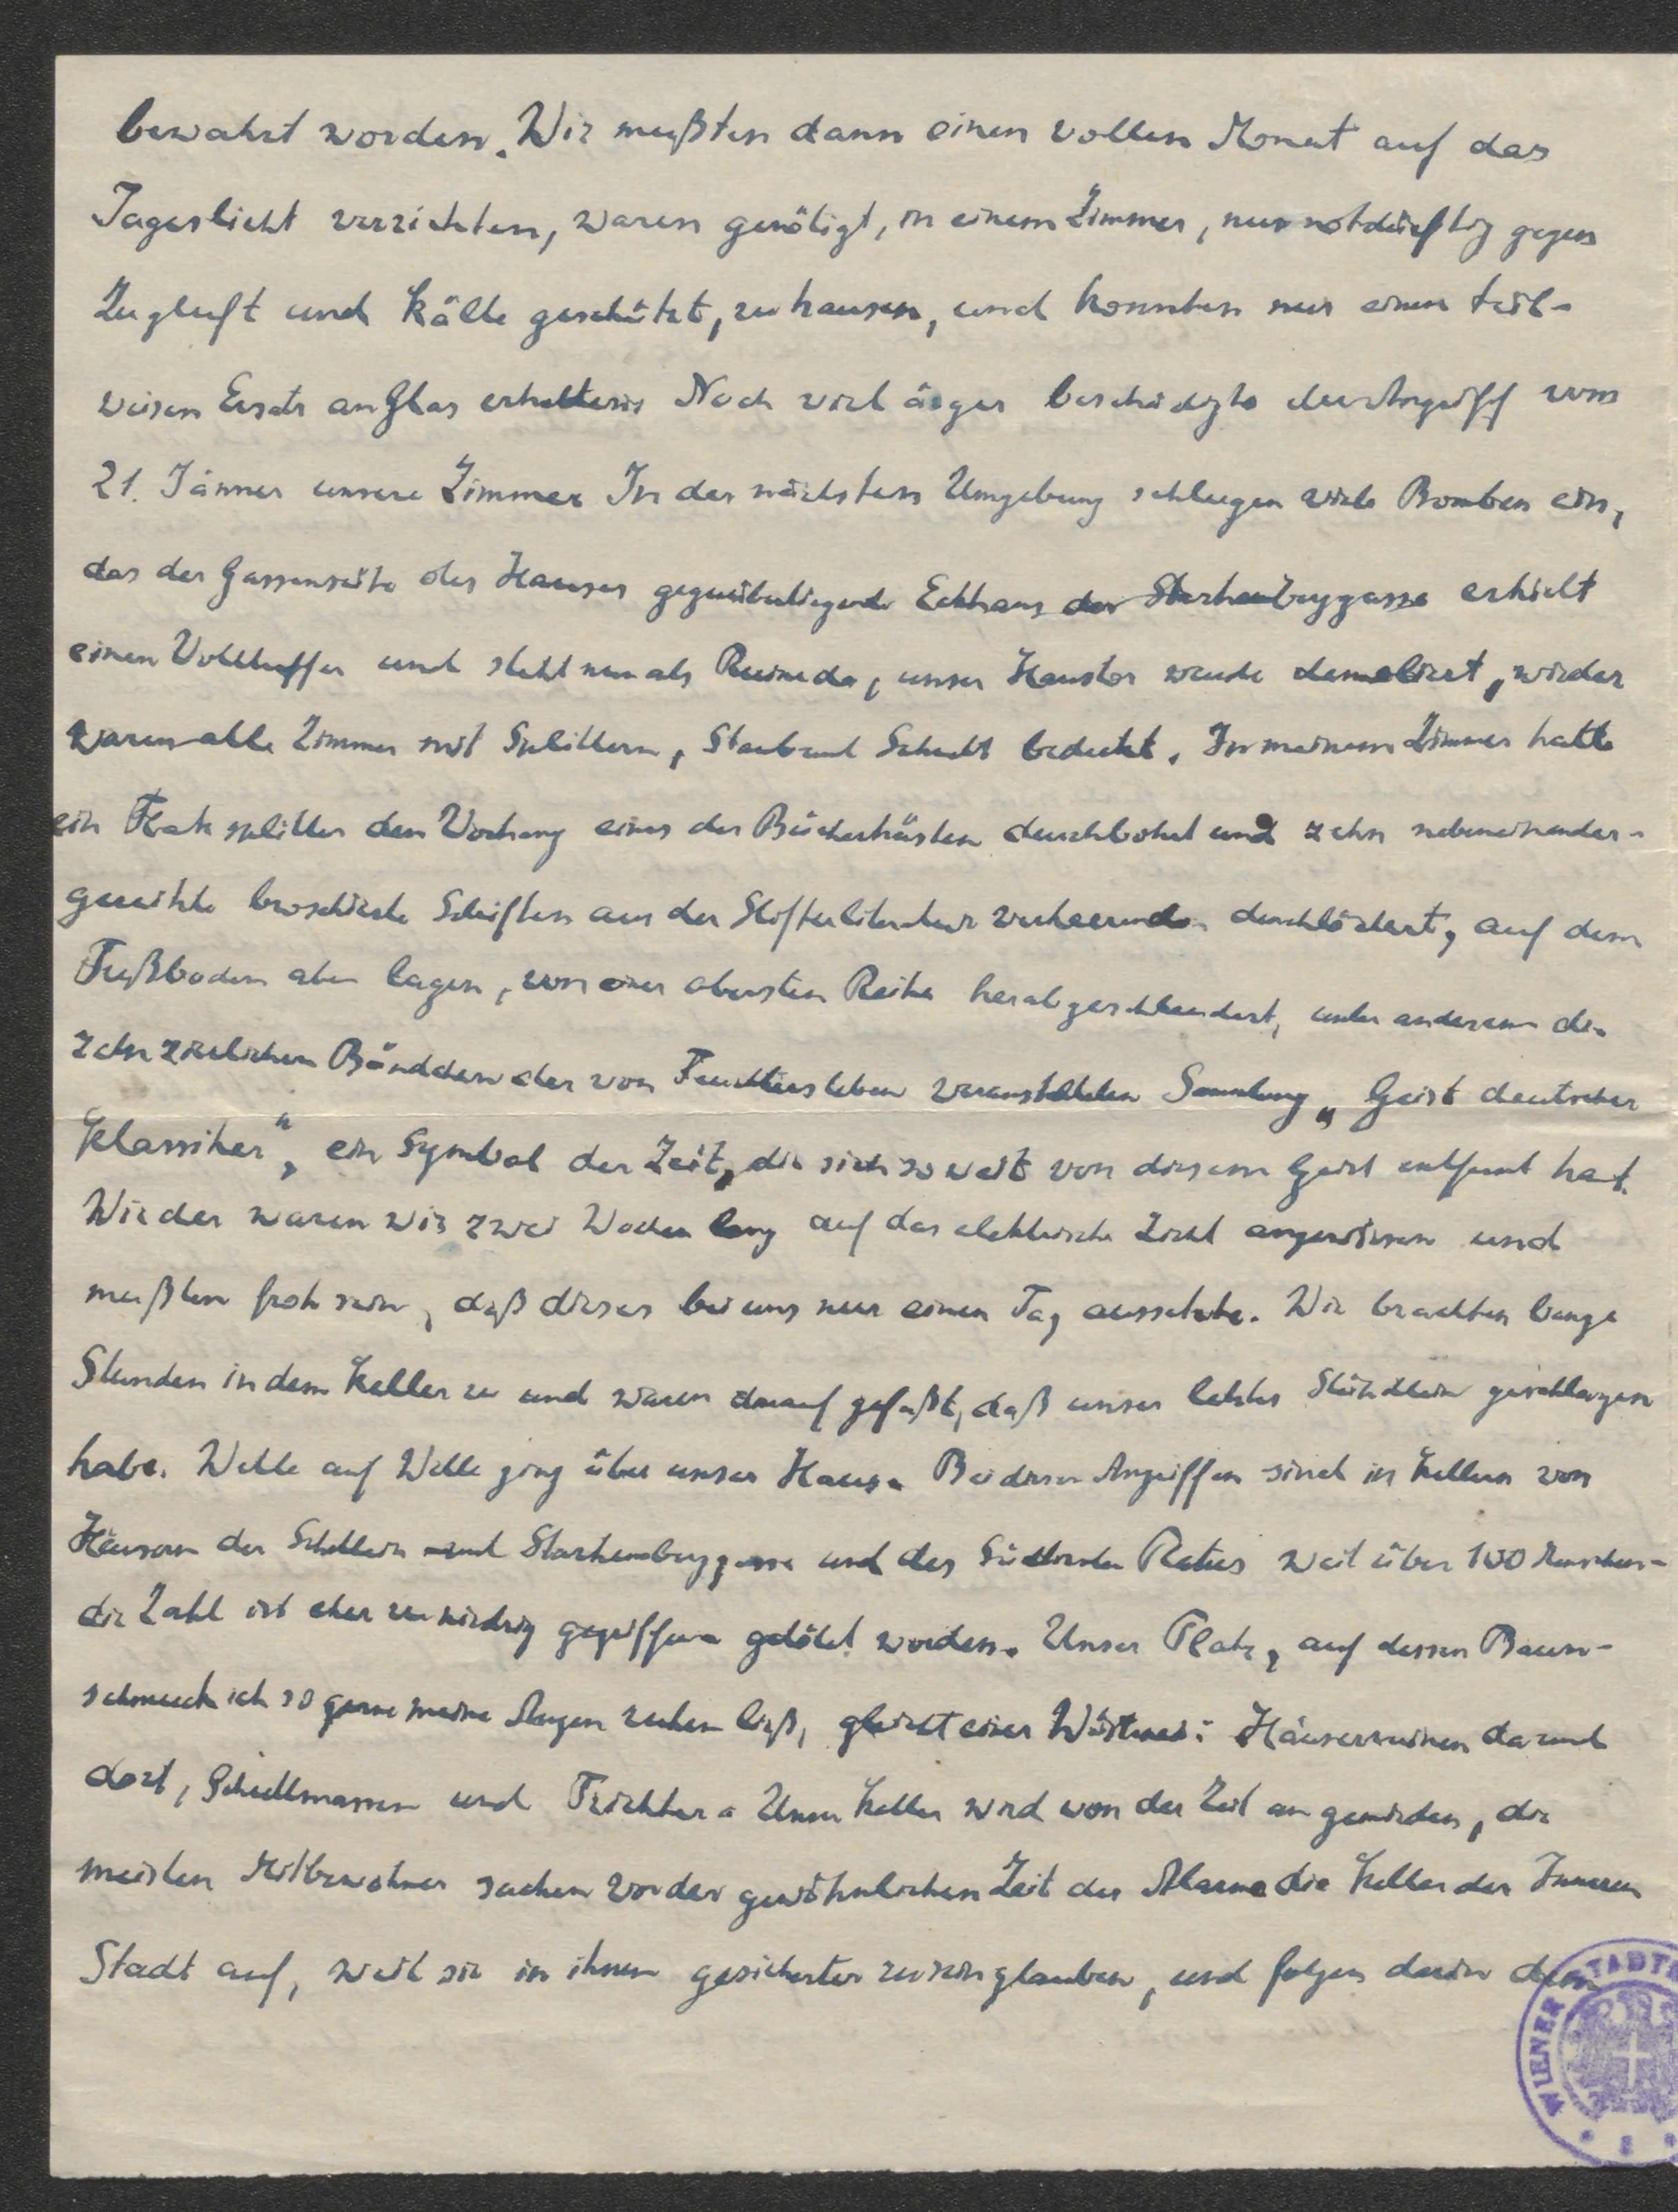 bewahrt worden. Wir mußten dann einen vollen Monat auf das
Tageslicht verzichten, waren genötigt, in einem Zimmer, nur notdürftig gegen
Zugluft und Kälte geschützt, zu hausen, und konnten nur einen teil-
weisen Ersatz an Glas erhalten. Noch viel ärger beschädigte der Angriff vom
21. Jänner unsere Zimmer In der nächsten Umgebung schlugen viele Bomben ein,
das der Gassenseite des Hauses gegenüberliegende Eckhaus der Starhemberggasse erhielt
einen Volltreffer und steht nun als Ruine da, unser Haustor wurde demoliert, wieder
waren alle Zimmer mit Splittern, Staub und Schutt bedeckt. In meinem Zimmer hatte
ein Flaksplitter den Vorhang eines der Bücherkästen durchbohrt und zehn nebeneinander-
gereihte broschierte Schriften aus der Stifterliteratur verheerend durchlöchert, auf dem
Fußboden aber lagen, von einer obersten Reihe herabgeschleudert, unter anderem die
zehn zierlichen Bändchen der von Feuchtersleben veranstalteten Sammlung „Geist deutscher
Klassiker“, ein Symbol der Zeit, die sich so weit von diesem Geist entfernt hat.
Wieder waren wir zwei Wochen lang auf das elektrische Licht angewiesen und
mußten froh sein, daß dieses bei uns nur einen Tag aussetzte. Wir brachten bange
Stunden in dem Keller zu und waren darauf gefaßt, daß unser letztes Stündlein geschlagen
habe. Welle auf Welle ging über unser Haus. Bei diesen Angriffen sind in Kellern von
Häusern der Schellein und Starhemberggasse und des Südtiroler Platzes weit über 100 Menschen-
die Zahl ist eher zu niedrig gegriffen- getötet worden. Unser Platz, auf dessen Baum-
schmuck ich so gerne meine Augen ruhen ließ, gleicht einer Wüstenei: Häuserruinen da und
dort, Schuttmassen und Trichter. Unser Keller wird von der Zeit an gemieden, die
meisten Mitbewohner suchen vor der gewöhnlichen Zeit des Alarms die Keller der Inneren
Stadt auf, weil sie in ihnen gesicherter zu sein glauben, und folgen darin dem
WIENER STADT